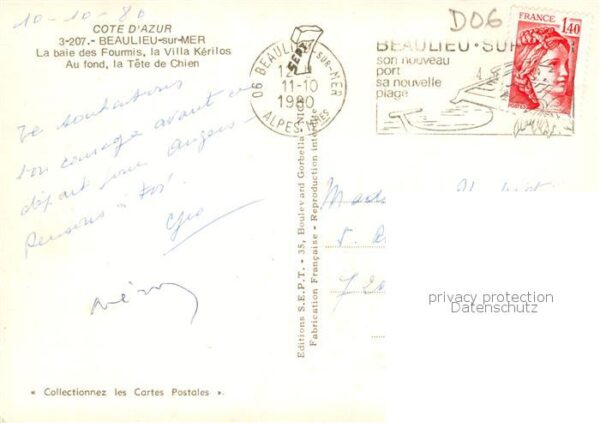 10-10-80
COTE D'AZUR
3-207.- BEAULIEU-sur-MER
La baie des Fourmis, la Villa Kérilos
Au fond, la Tête de Chien
Te souhaitons
bon courage avant
départ pour Angers
Pensons à toi
« Collectionnez les Cartes Postales ».
Editions S.E.P.T. - 35, Boulevard Gorbella - NICE
Fabrication Française - Reproduction interdite
SEPT
06 BEAULIEU-SUR-MER
12
11-10
1980
ALPES-MMES
D06
BEAULIEU-SUR
son nouveau
port
sa nouvelle
plage
FRANCE
1,40
POSTES
5
privacy protection
Datenschutz